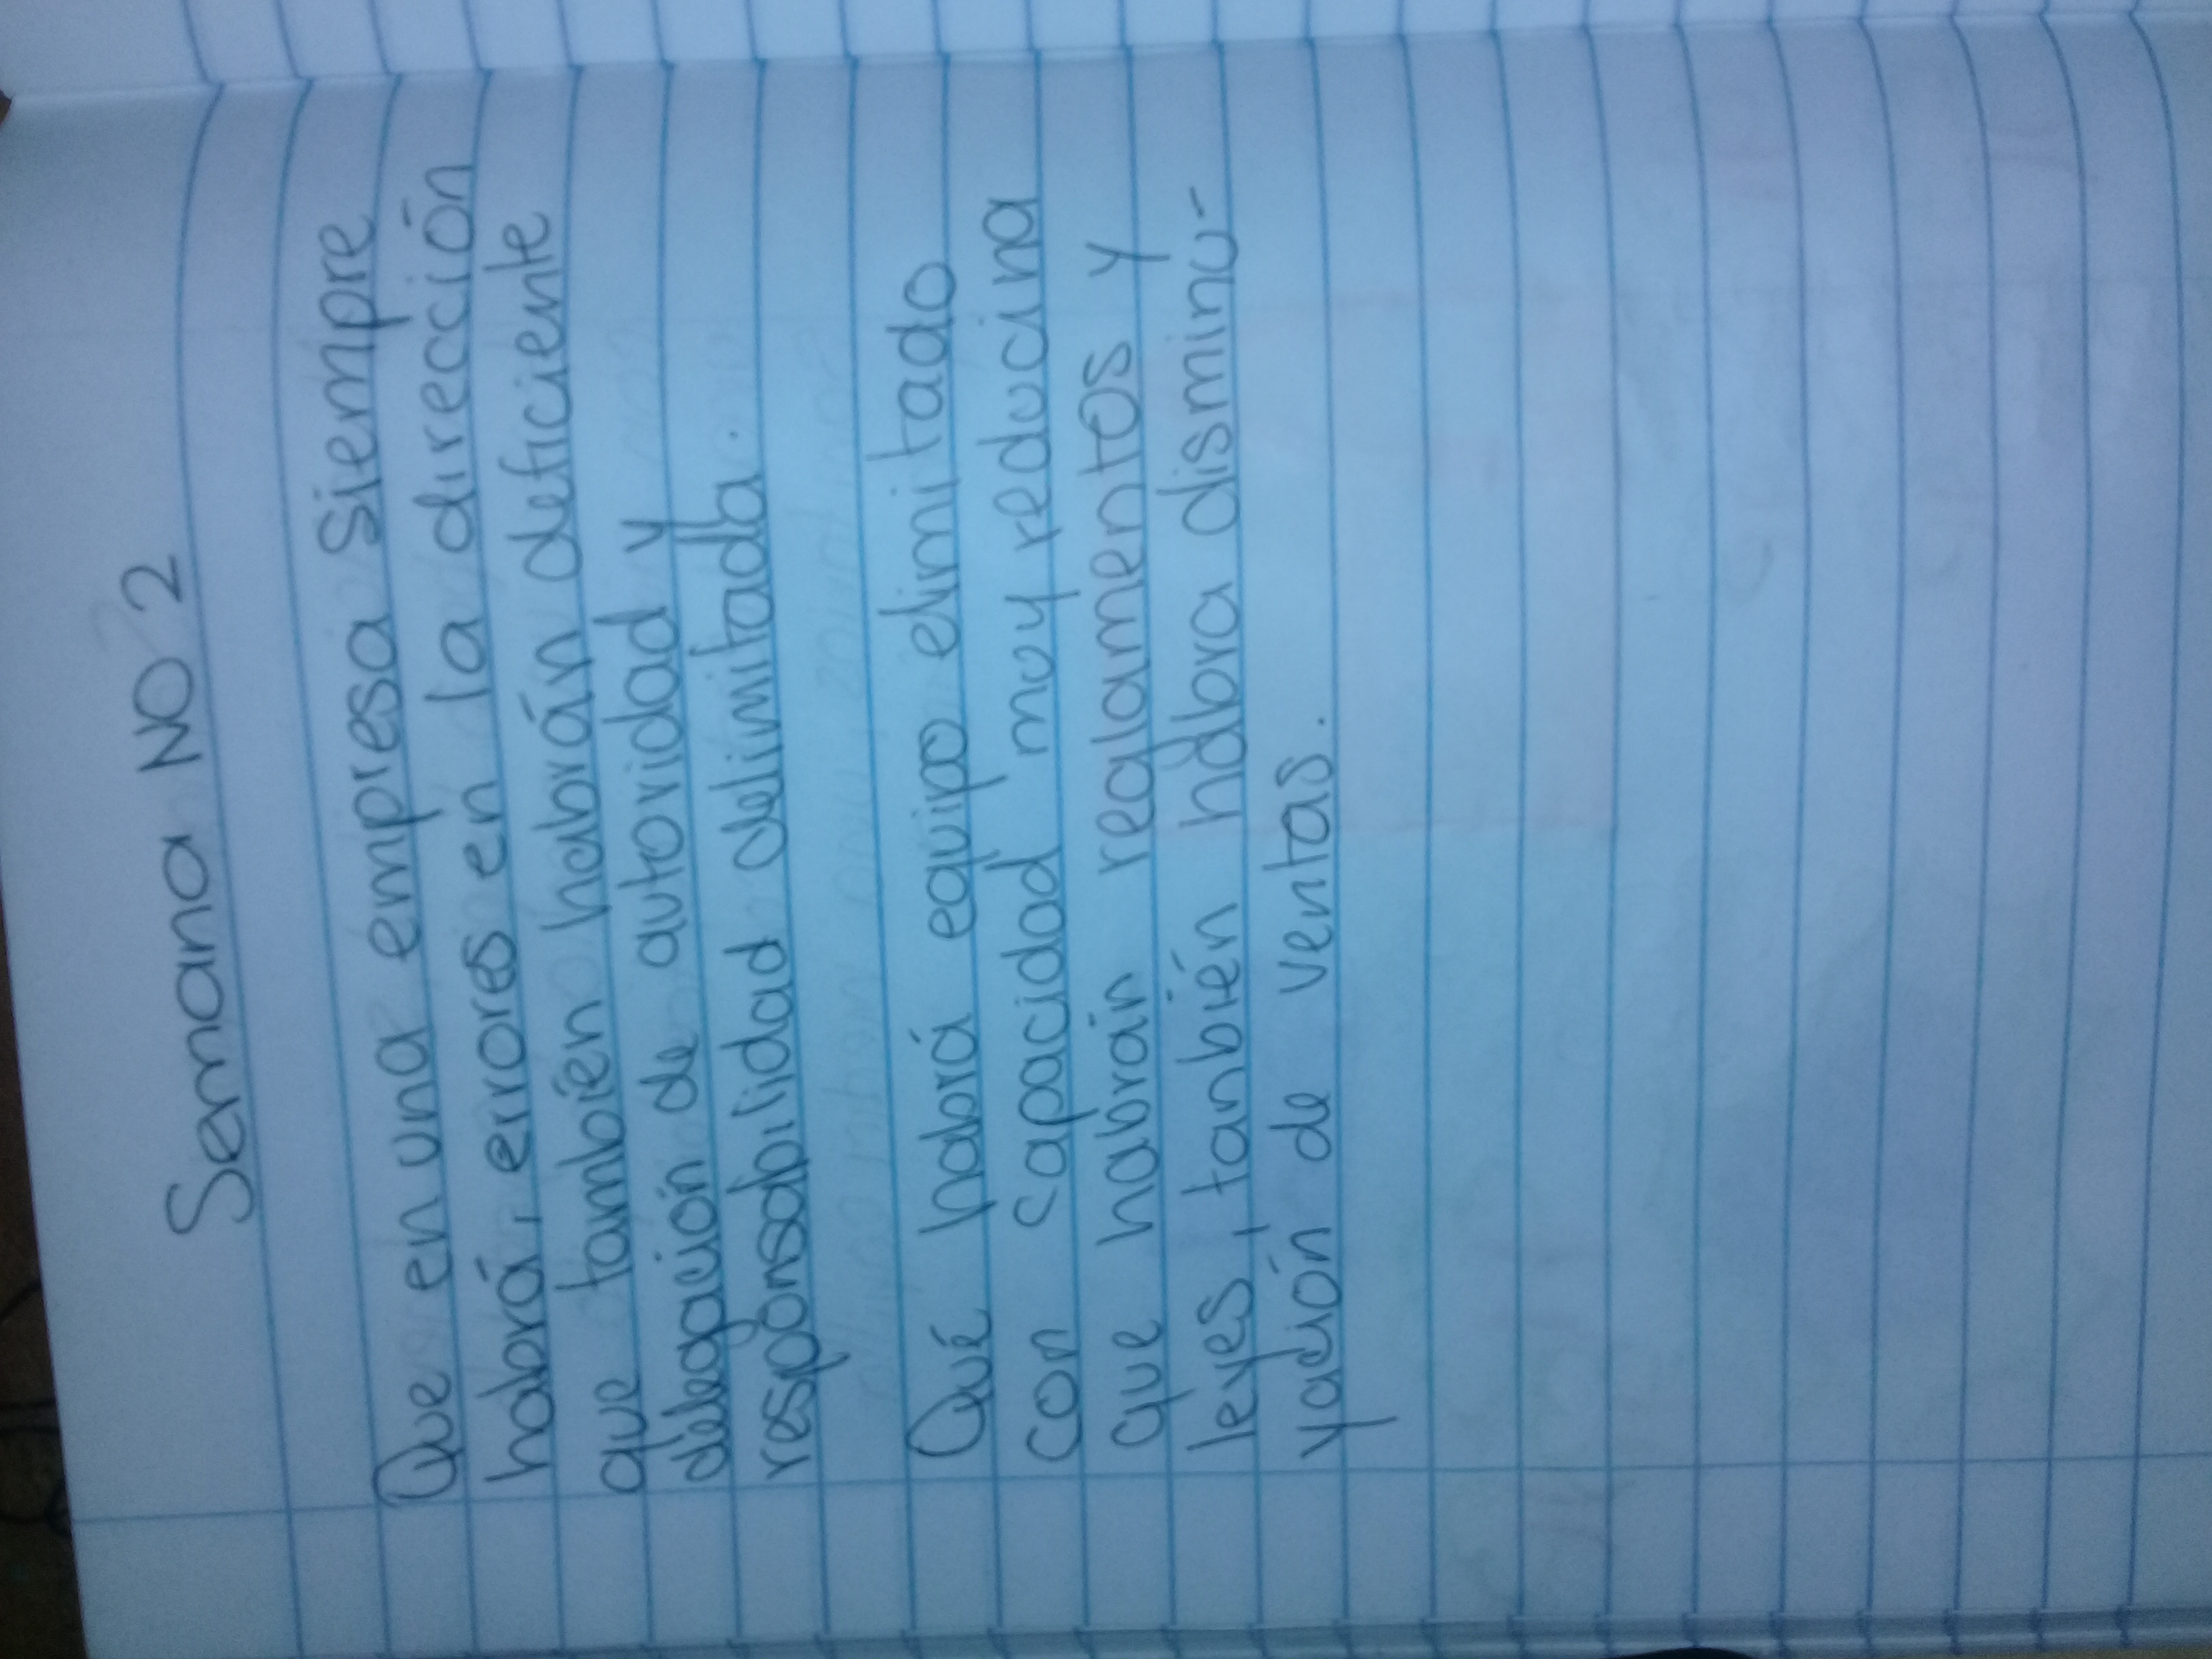 Semana NO 2
Que en una empresa siempre
habrá, errores en la dirección
que también habrán deficiente
delegación de autoridad y
responsabilidad delimitada.
Qué habrá equipo elimitado
con capacidad muy reducina
que habrán reglamentos y
leyes, tanbién habra disminu-
yación de ventas.